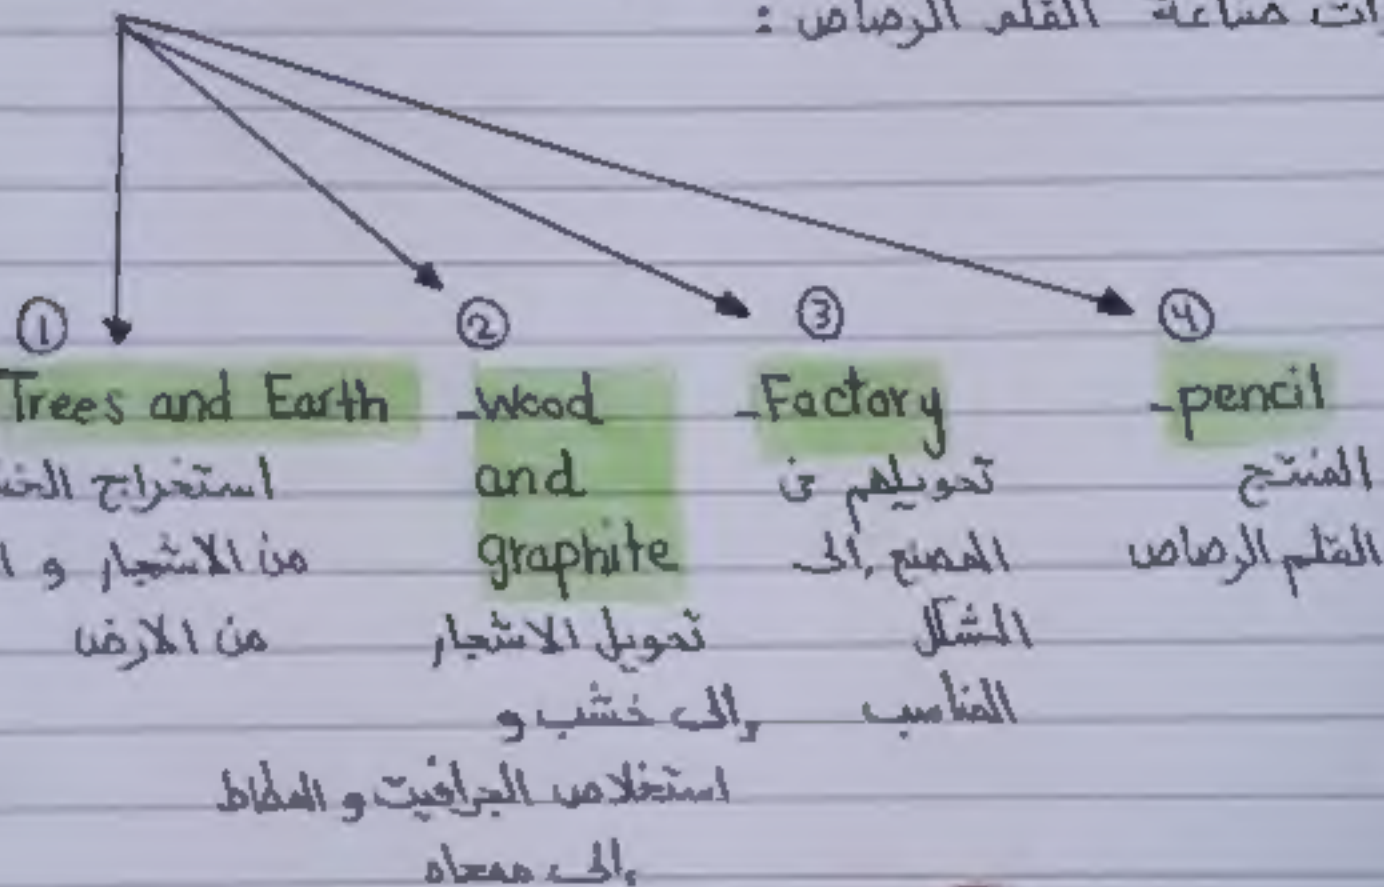 صناعة القلم الرصاص :
①
Trees and Earth
استخراج
من الاشجار و
من الارض
②
-Wood
and
graphite
تحويل الاشجار
إلى خشب و
استخلاص الجرافيت و المطاط
إلى ممحاه
③
-Factory
تحويلهم فى
المصنع إلى
الشكل
المناسب
④
-pencil
المنتج
القلم الرصاص